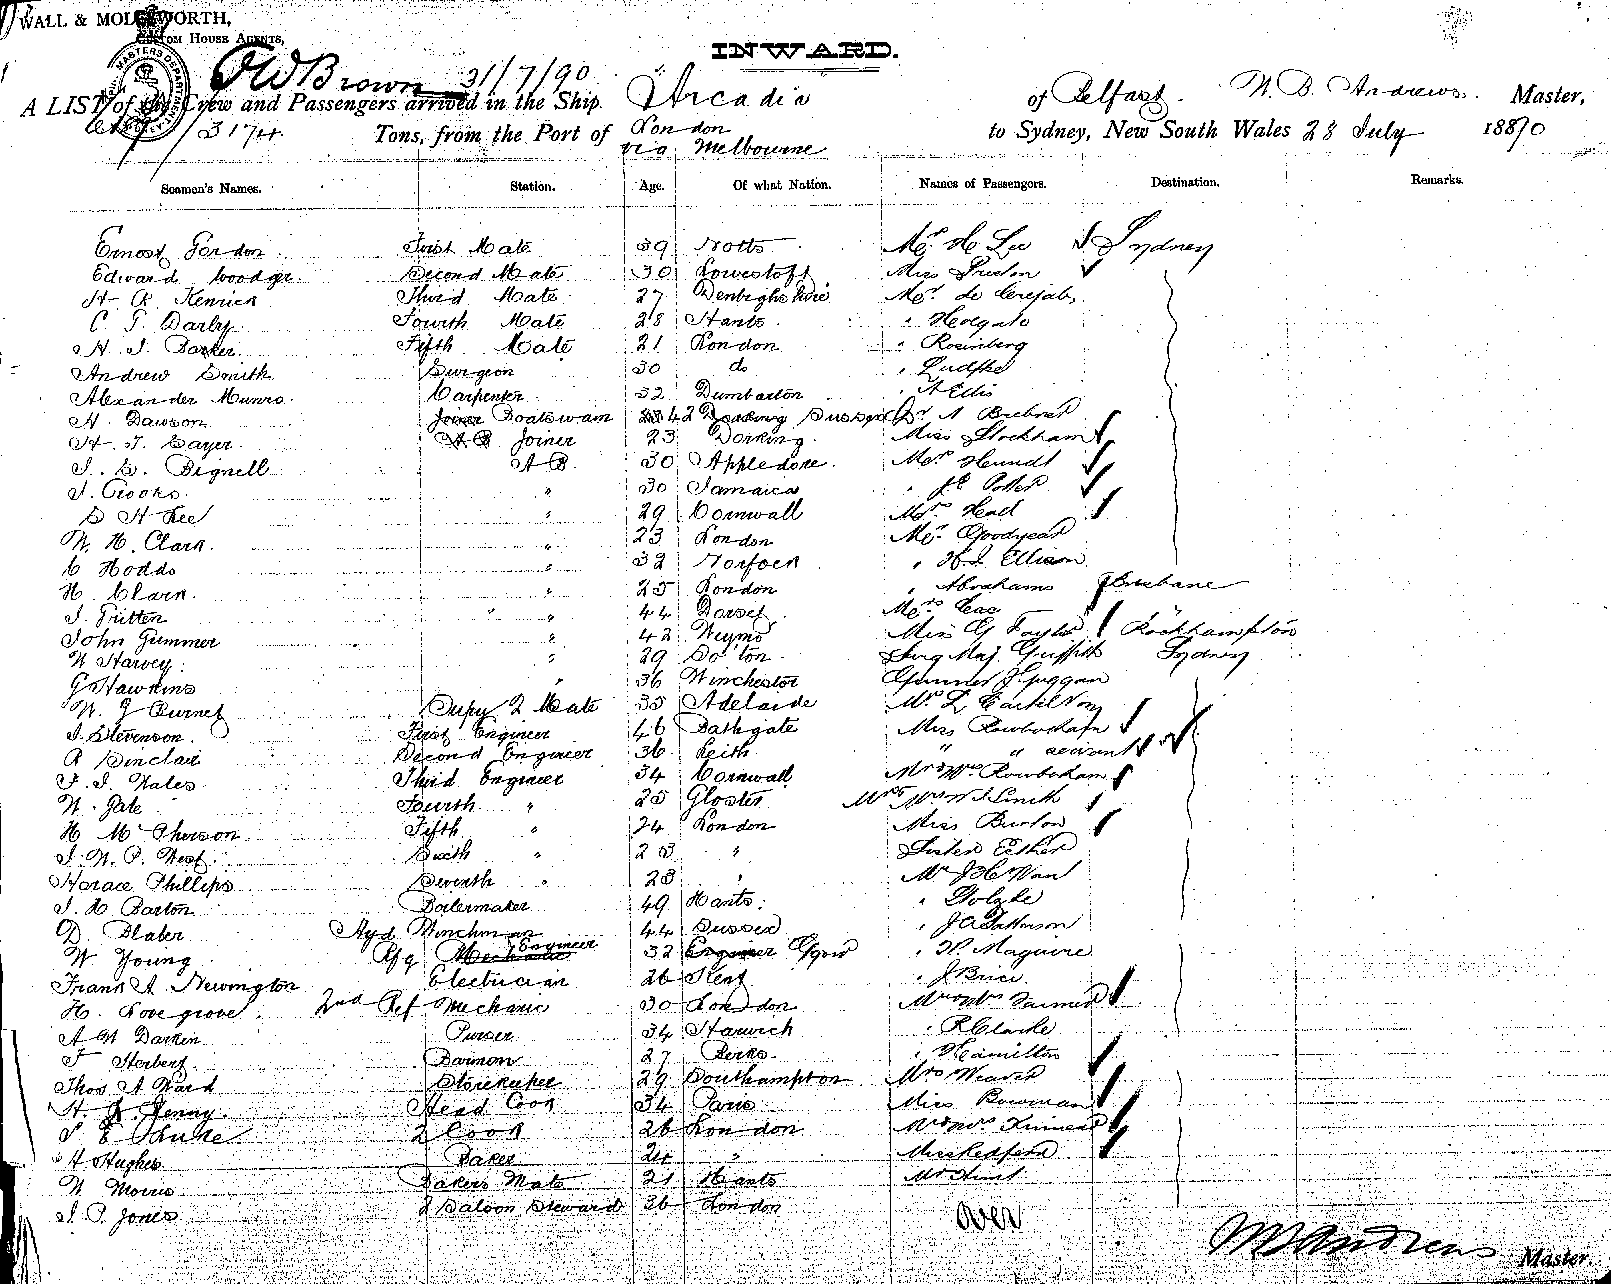 WALL & MOLESWORTH,
CUSTOM HOUSE AGENTS,
INWARD.
MASTERS DEPARTMENT
Brown 31/7/90
A LIST of the Crew and Passengers arrived in the Ship Arcadia of Belfast W. B. Andrews Master,
3174 Tons, from the Port of London via Melbourne to Sydney, New South Wales 28 July 1890
Seamen's Names. Station. Age. Of what Nation. Names of Passengers. Destination. Remarks.
Ernest Gordon First Mate 39 Notts Mr H Lee Sydney
Edward Second Mate 30 Lowestoft Miss
H. R. Kenrick Third Mate 27 Denbighshire Mr. de
C. T. Darby Fourth Mate 28 Hants " Holgate
H. J. Barker Fifth Mate 21 London " Rosenberg
Andrew Smith Surgeon 30 do "
Alexander Munro Carpenter 32 Dumbarton " A Ellis
H. Dawson Joiner Boatswain 42 Sussex
H. J. Sayer AB Joiner 23 Dorking Miss Stockham
J. S. Bignell AB 30 Appledore Mr.
J. Crooks " 30 Jamaica " Potter
S H Lee " 29 Cornwall Mr. Head
W. H. Clark " 23 London Mr. Goodyear
C Hodds " 32 Norfolk " H. J. Ellison
H. Clark " 25 London " Abrahams Brisbane
J. Tritten " 44 Dorset
John Gummer " 42 Weymo Miss G Taylor Rockhampton
W Harvey " 29 So'ton Surg Maj. Griffith Sydney
G Hawkins " 36 Winchester Gunner J.
W. G Burnet Supy 2 Mate 35 Adelaide Mr.
J. Stevenson First Engineer 46 Bathgate Miss Rowbotham
R Sinclair Second Engineer 36 Leith " " servant
F. J. Wales Third Engineer 34 Cornwall Mr & Mrs Rowbotham
W. Gate Fourth " 25 Gloster Mr & Mrs W J Smith
H McPherson Fifth " 24 London Miss Burton
J. W. P. West Sixth " 23 " Sister Esther
Horace Phillips Seventh " 23 " Mr
J. H Barton Boilermaker 49 Hants "
D. Slater Hyd Winchman 44 Sussex " J A Patterson
W Young Rfg Mechanic Engineer 32 Engineer " Maguire
Frank A. Newington Electrician 26 Kent " J Brice
H. Lovegrove 2nd Ref Mechanic 30 London Mr & Mrs Farmer
A W Darken Purser 34 Harwich " R Clarke
F Herbert Barman 27 Berks " Hamilton
Thos A Ward Storekeeper 29 Southampton Mrs Weaver
H. Jenny Head Cook 34 Paris Miss Bowman
2 Cook 26 London Mr & Mrs
H Hughes Baker 24 " Miss Redfern
W Morris Bakers Mate 21 Hants Mr Hunt
J. P. Jones 2 Saloon Steward 36 London
over
W B Andrews Master.